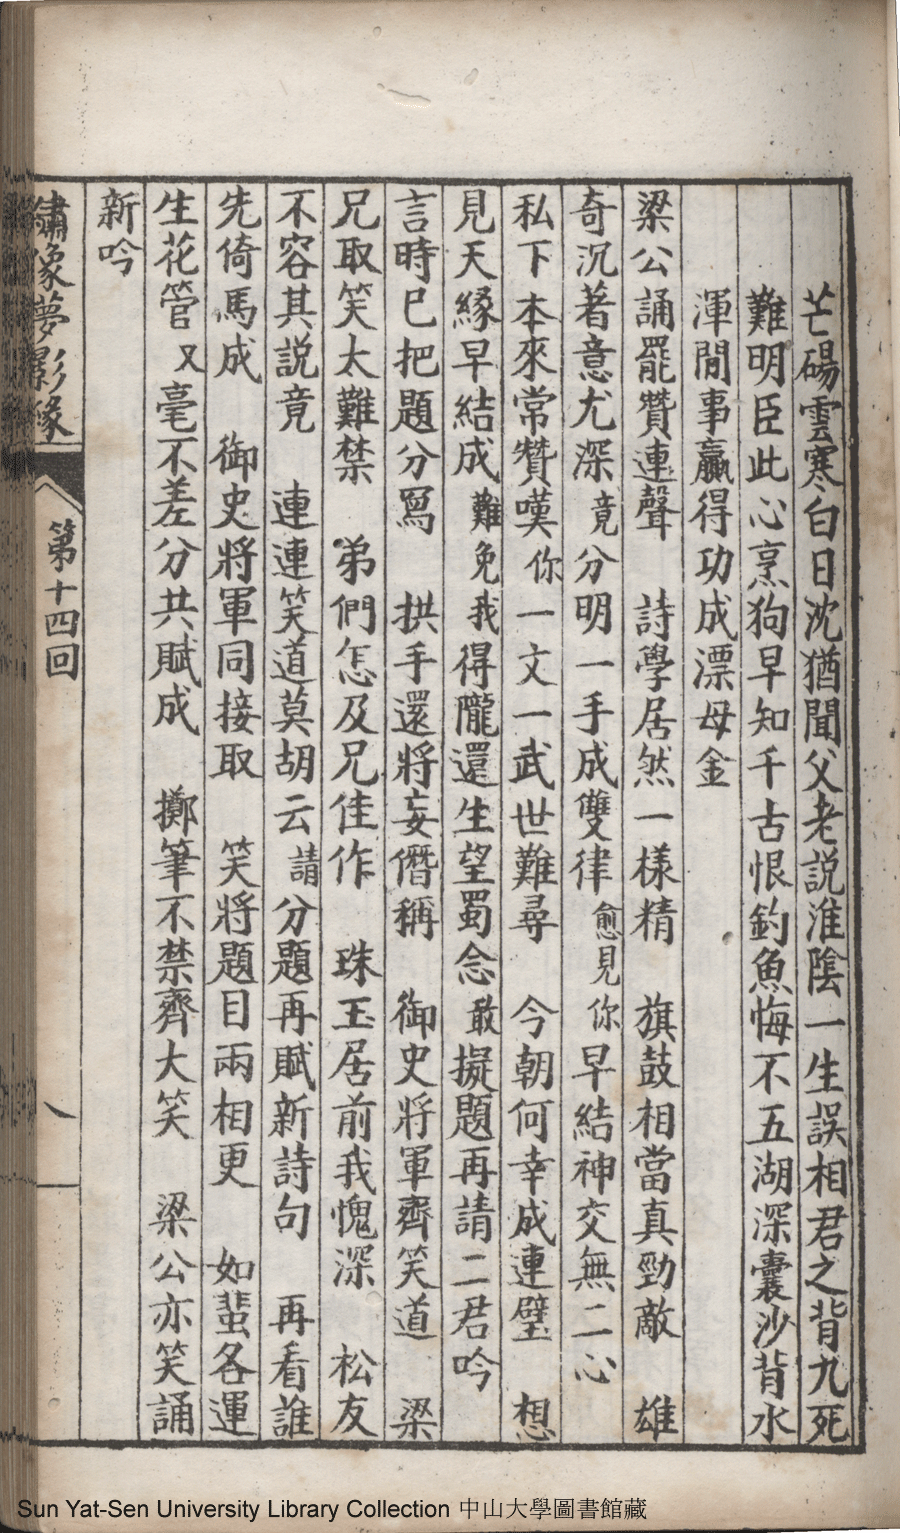 芒碭雲寒白日沈猶聞父老說淮陰一生誤相君之背九死
難明臣此心烹狗早知千古恨釣魚悔不五湖深囊沙背水
渾閒事贏得功成漂母金
梁公誦罷贊連聲　詩學居然一樣精　旗鼓相當真勁敵　雄
奇沉著意尤深竟分明一手成雙律愈見你早結神交無二心
私下本來常贊嘆你一文一武世難尋　今朝何幸成連璧　想
見天緣早結成難免我得隴還生望蜀念敢擬題再請二君吟
言時已把題分寫　拱手還將妄僭稱　御史將軍齊笑道　梁
兄取笑太難禁　弟們怎及兄佳作　珠玉居前我愧深　松友
不容其說竟　連連笑道莫胡云請分題再賦新詩句　再看誰
先倚馬成　御史將軍同接取　笑將題目兩相更　如蜚各運
生花管又毫不差分共賦成　擲筆不禁齊大笑　梁公亦笑誦
新吟
繡像夢影緣　第十四回
Sun Yat-Sen University Library Collection 中山大學圖書館藏